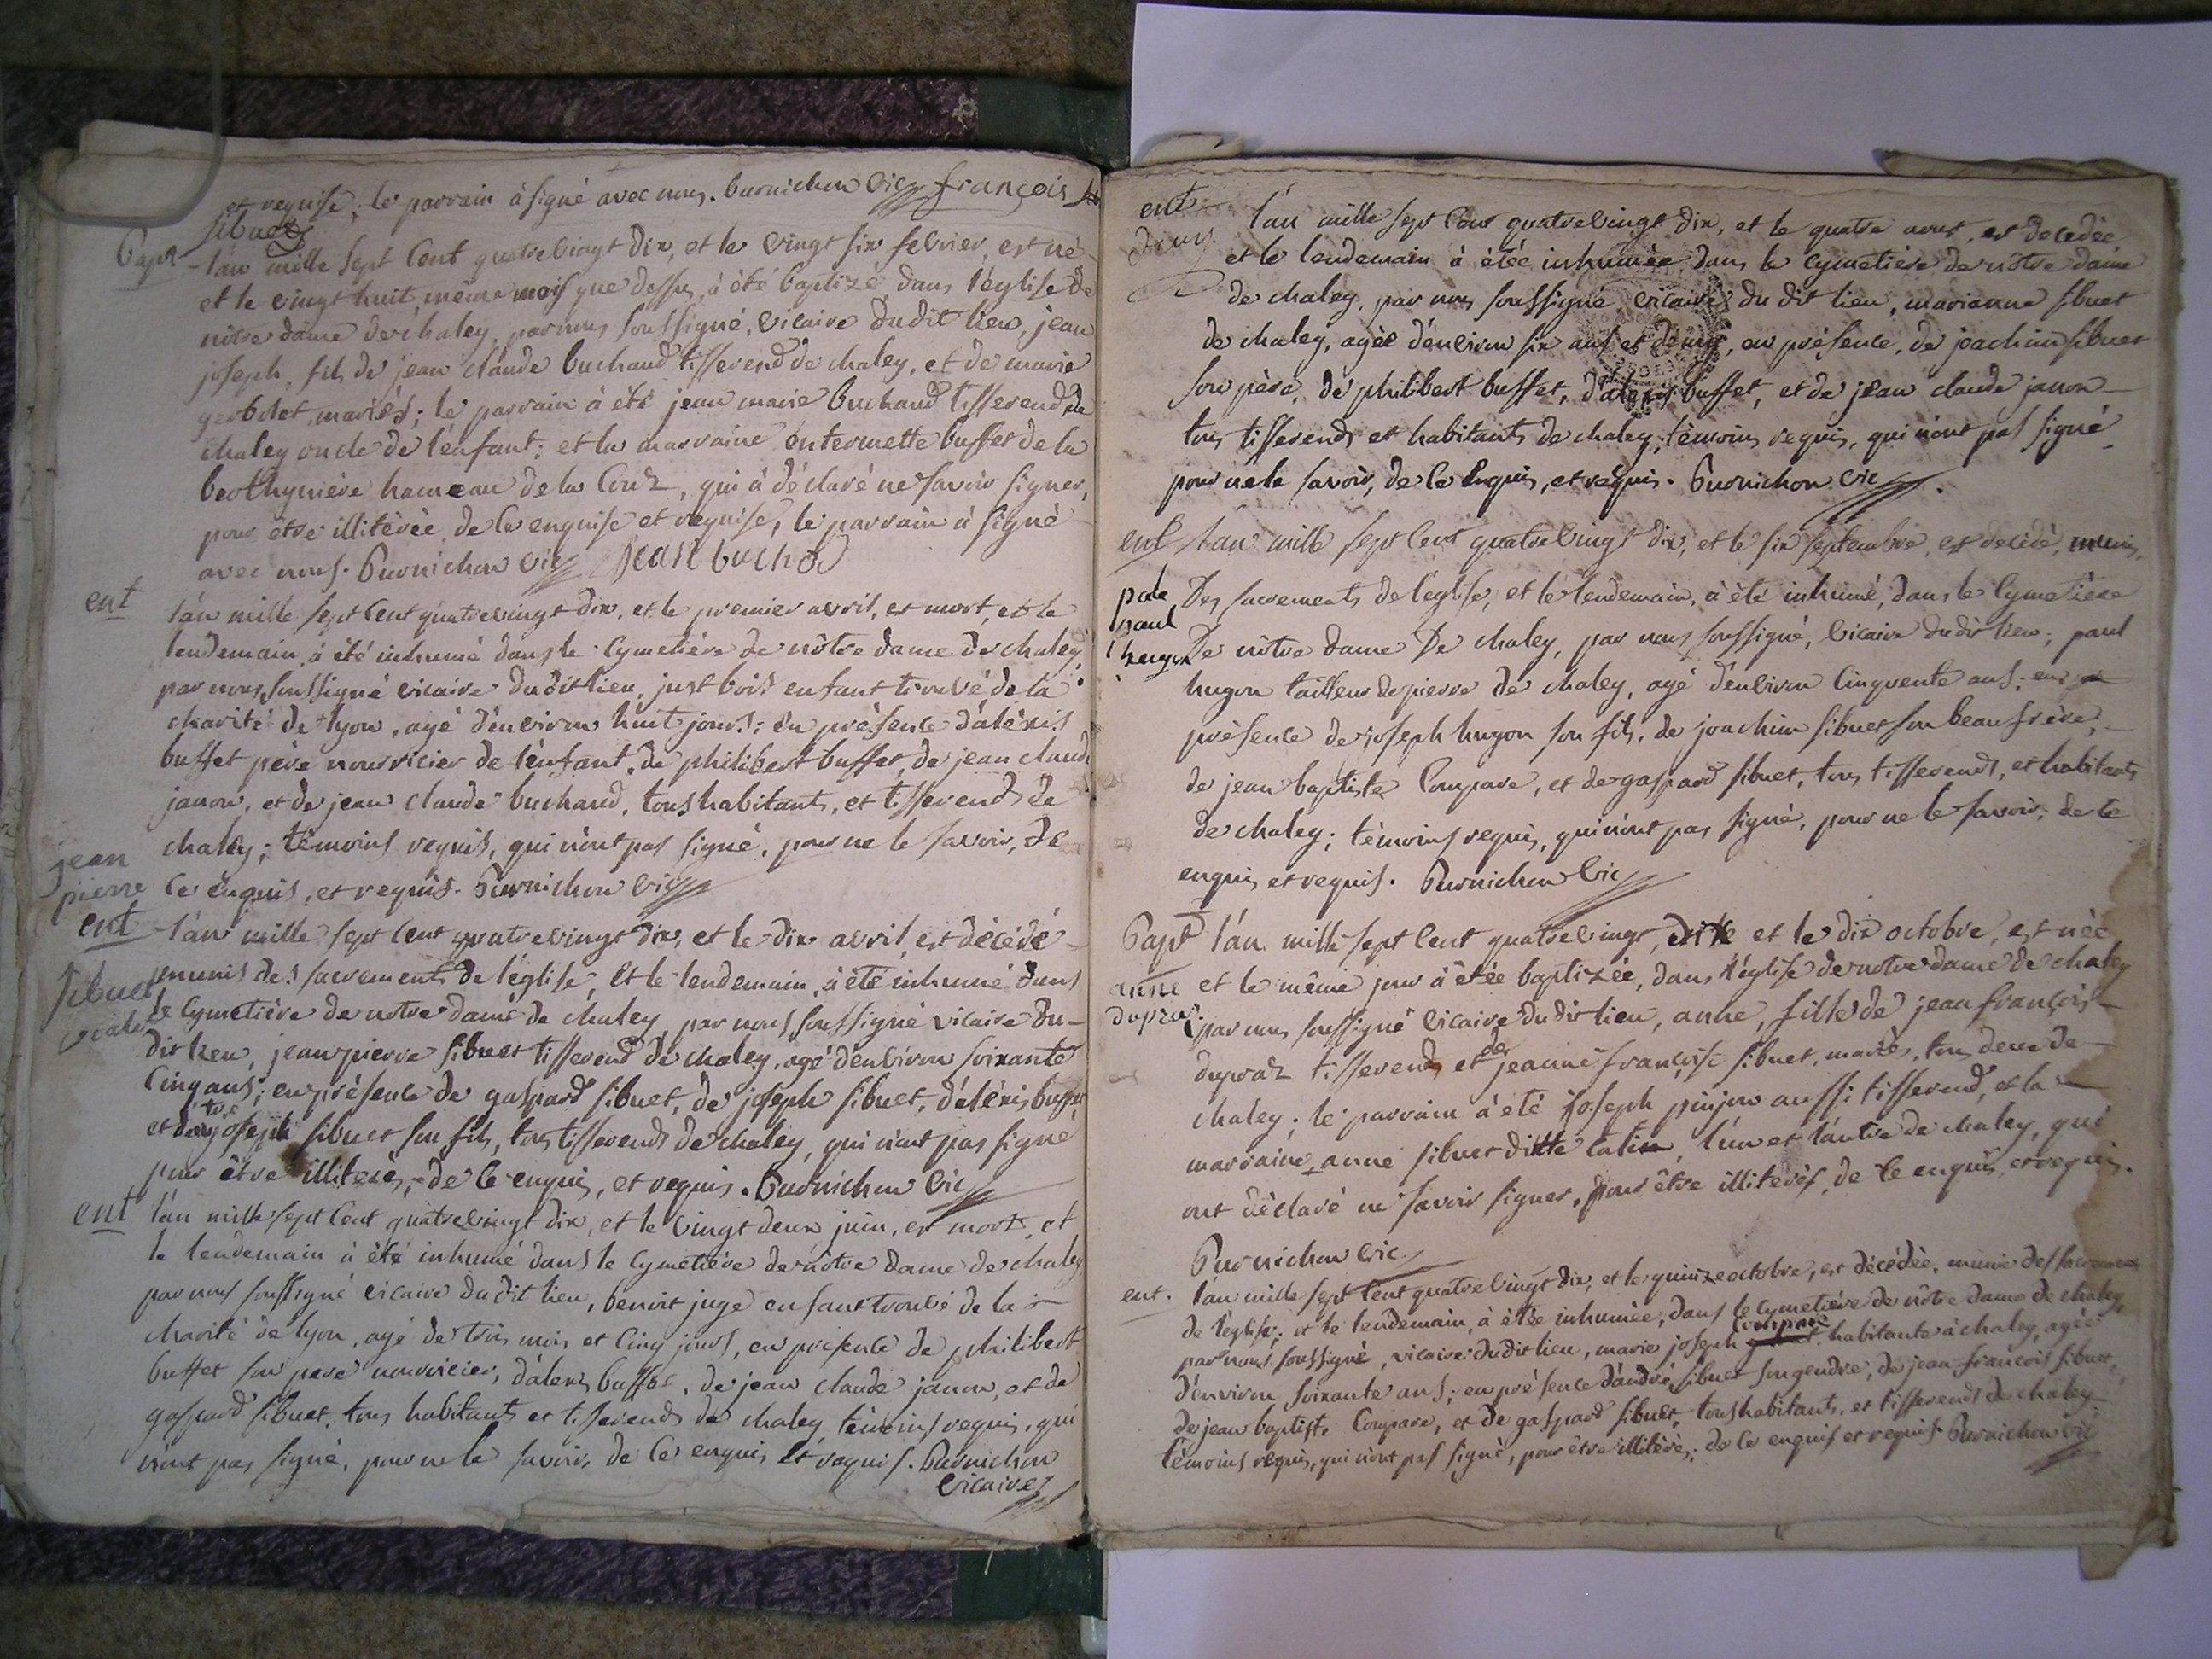 et requise; le parrain à signé avec nous. burnichon vic françois
sibuet
Bapt l'an mille sept cent quatrevingt dix, et le vingt six fevrier, est né
et le vingt huit même mois que dessus, à été baptizé dans l'église de
nôtre dame de chaley, par nous soussigné, vicaire du dit lieu, jean
joseph, fils de jean claude buchaud tisserend de chaley, et de marie
gerbolet, mariés; le parrain à été jean marie buchaud tisserend de
chaley oncle de l'enfant; et la marraine entermette buffet de la
berthynière hameau de la Couz, qui à déclaré ne savoir signer,
pour être illitérée de ce enquise et requise, le parrain à signé
avec nous. Burnichon vic jean buchod
ent l'an mille sept cent quatrevingt dix, et le premier avril, est mort, et le
lendemain à été inhumé dans le cymetière de nôtre dame de chaley,
par nous soussigné vicaire du dit lieu, just bois enfant trouvé de la
charité de lyon, agé d'environ huit jours; en présence d'aléxis
buffet père nourricier de l'enfant, de philibert buffet, de jean claude
janon, et de jean claude buchaud, tous habitants, et tisserends de
chaley; témoins requis, qui n'ont pas signé, pour ne le savoir, de
ce enquis, et requis. Burnichon vic
jean
pierre
ent l'an mille sept cent quatrevingt dix, et le dix avril, est décédé
sibuet munis des sacrements de l'église, et le lendemain, à été inhumé dans
le cymetière de notre dame de chaley, par nous soussigné vicaire du
dit lieu, jean pierre sibuet tisserend de chaley, agé d'environ soixante
cinq ans; en présence de gaspard sibuet, de joseph sibuet, d'aléxis buffet
et d'autre joseph sibuet son fils, tous tisserends de chaley, qui n'ont pas signé
pour être illiterés, de ce enquis, et requis. Burnichon vic
ent l'an mille sept cent quatrevingt dix, et le vingt deux juin, est mort, et
le lendemain à été inhumé dans le cymetière de nôtre dame de chaley
par nous soussigné vicaire du dit lieu, benoit juge enfant trouvé de la
charité de lyon, agé de trois mois et cinq jours, en présence de philibert
buffet son pere nourricier, d'alexis buffet, de jean claude janon, et de
gaspard sibuet, tous habitants et tisserends de chaley témoins requis, qui
n'ont pas signé, pour ne le savoir, de ce enquis et requis. Burnichon
vicaire
ent l'an mille sept cent quatrevingt dix, et le quatre aout, est decedée
et le lendemain à étée inhumée, dans le cymetière de nôtre dame
de chaley, par nous soussigné vicaire du dit lieu, marianne sibuet
de chaley, agée d'environ six ans et demis, en présence, de joachim sibuet
son père, de philibert buffet, d'alexis buffet, et de jean claude janon
tous tisserends et habitants de chaley; témoins requis, qui n'ont pas signé
pour ne le savoir, de ce enquis, et requis. Burnichon vic
ent l'an mille sept cent quatrevingt dix, et le six septembre, est decédé, munis,
des sacrements de l'eglise, et le lendemain, à été inhumé, dans le cymetière
paul
hugon de nôtre dame de chaley, par nous soussigné, vicaire du dit lieu, paul
hugon tailleur de pierre de chaley, agé d'environ cinquente ans; en
présence de joseph hugon son fils, de joachim sibuet son beau frère,
de jean baptiste Compare, et de gaspard sibuet, tous tisserends, et habitants
de chaley; témoins requis, qui n'ont pas signé, pour ne le savoir; de ce
enquis et requis. Burnichon vic
Bapt l'an mille sept cent quatrevingt, dix et le dix octobre, est née
anne et le même jour à étée baptizée, dans l'église de notre dame de chaley
dupraz par nous soussigné vicaire du dit lieu, anne, fille de jean françois
dupraz tisserend et de jeanne françoise sibuet, mariés, tous deux de
chaley; le parrain à été joseph pinjon aussi tisserend, et la
marraine anne sibuet ditte catin, l'un et l'autre de chaley, qui
ont déclaré ne savoir signer, pour être illiterés, de ce enquis, et requis.
Burnichon vic
ent. l'an mille sept cent quatrevingt dix, et le quinze octobre, est décédée, munie des sacrements
de l'église; et le lendemain, à étée inhumée, dans le cymetière de nôtre dame de chaley
par nous soussigné, vicaire du dit lieu, marie joseph compare habitante à chaley, agée
d'environ soixante ans; en présence d'andré sibuet son gendre, de jean francois sibuet,
de jean baptiste Compare, et de gaspard sibuet, tous habitants, et tisserends de chaley
témoins requis, qui n'ont pas signé, pour être illitérés; de ce enquis et requis Burnichon vic